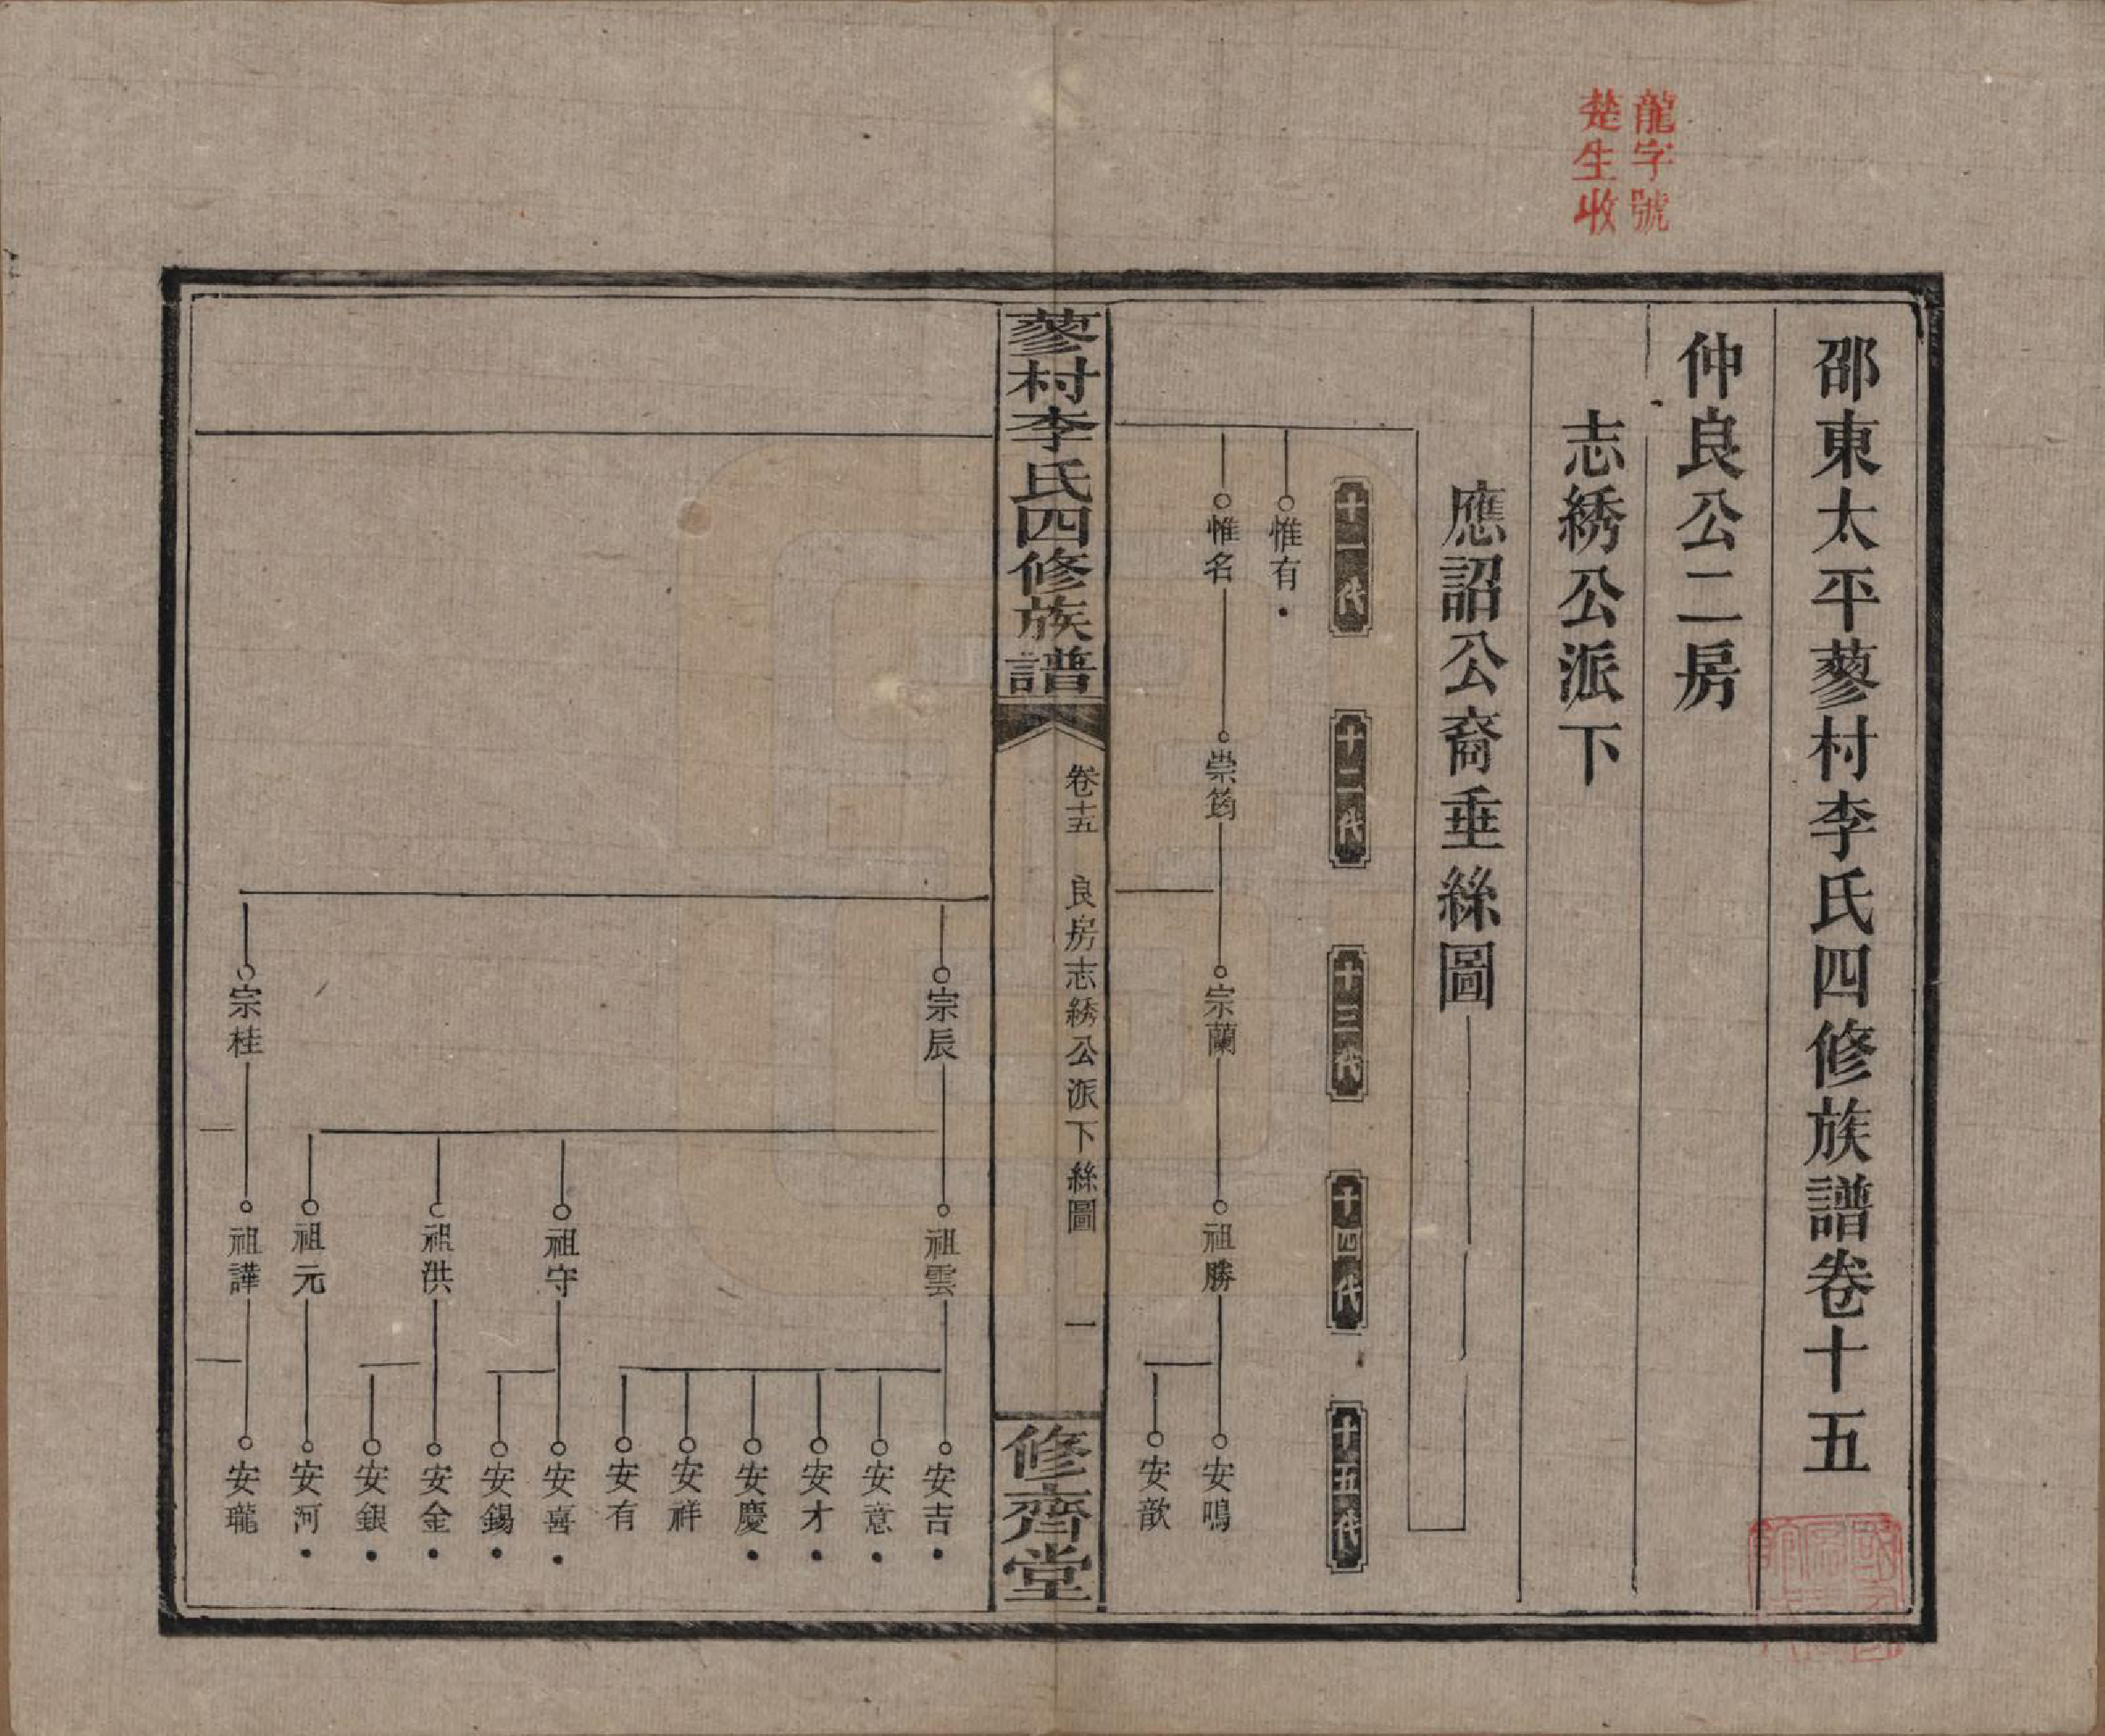 龍字號
楚生收
邵東太平蓼村李氏四修族譜卷十五
仲良公二房
志綉公派下
應詔公裔垂絲圖
十一代
十二代
十三代
十四代
十五代
惟有
惟名
崇筠
宗蘭
祖勝
安鳴
安歆
蓼村李氏四修族譜
卷十五
良房志綉公派下絲圖
一
修齊堂
宗辰
祖雲
安吉
安意
安才
安慶
安祥
安有
祖守
安喜
安錫
祖洪
安金
安銀
祖元
安河
宗桂
祖譁
安瓏